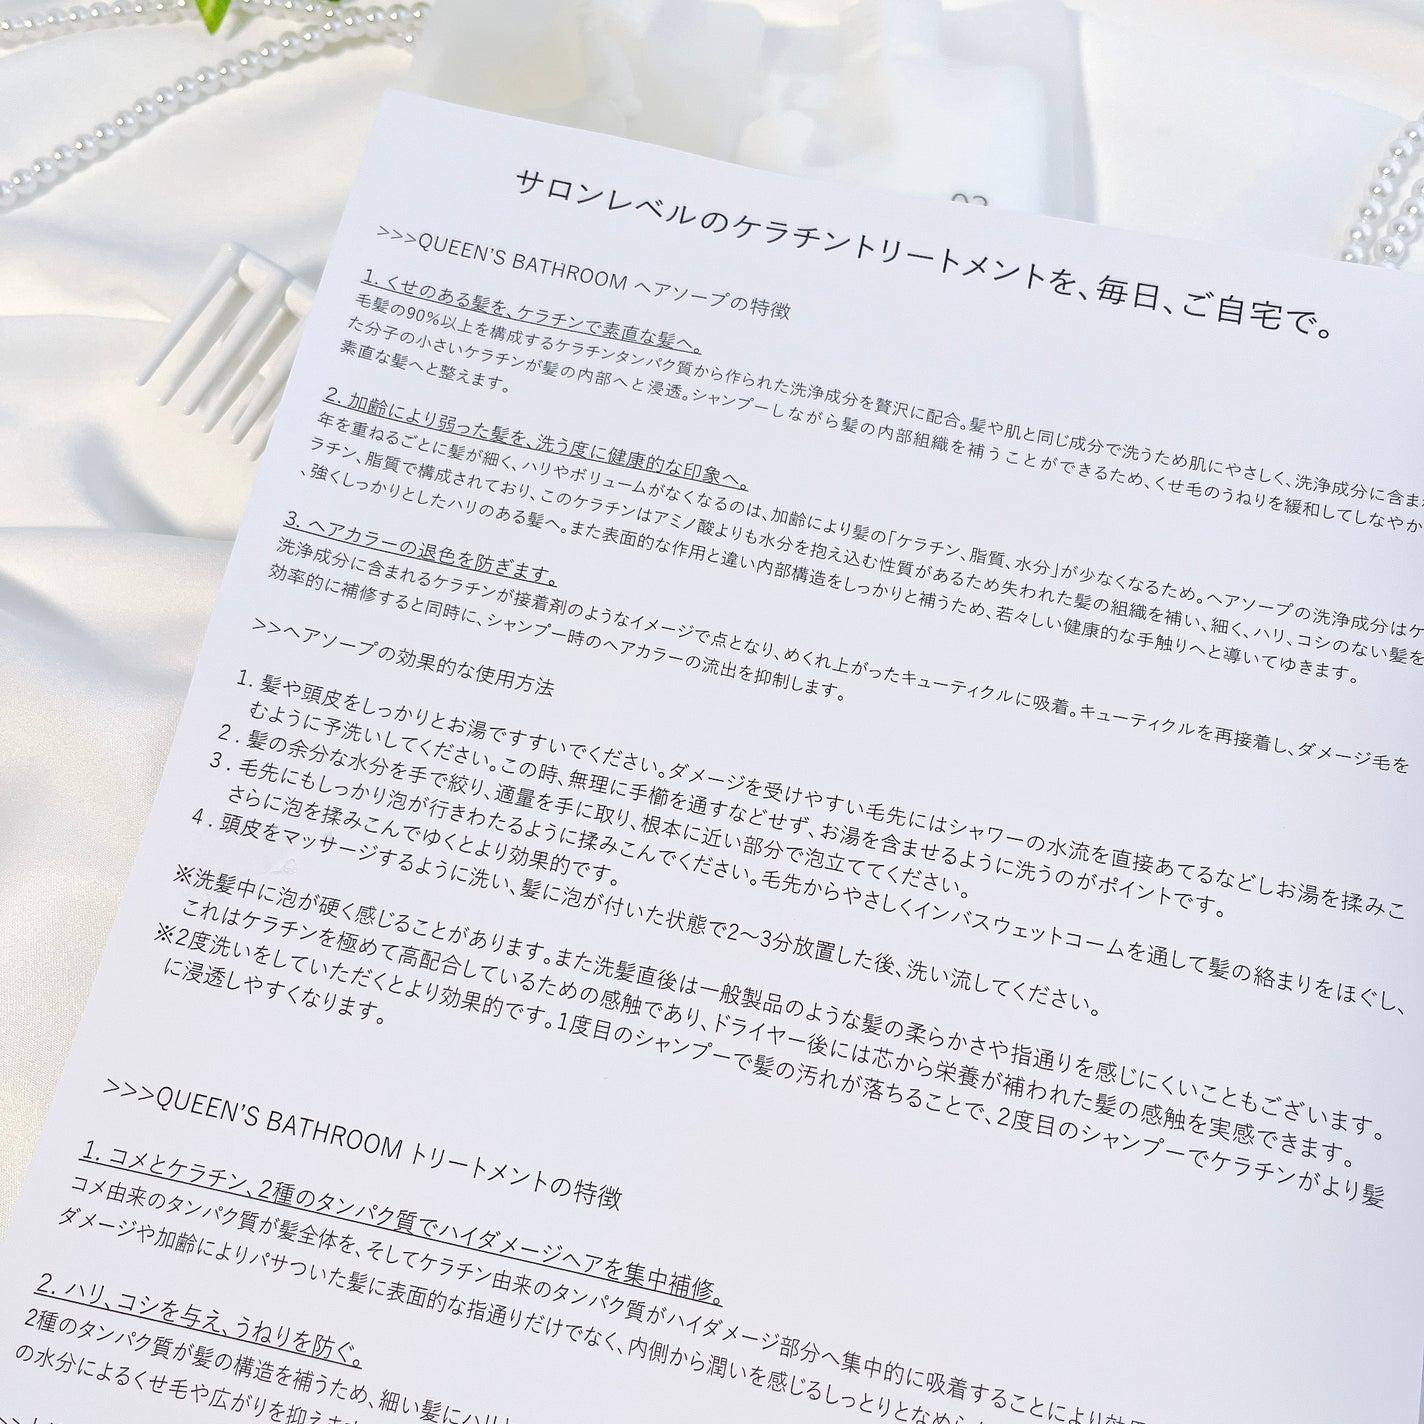 02
サロンレベルのケラチントリートメントを、毎日、ご自宅で。
>>>QUEEN'S BATHROOM ヘアソープの特徴
1. くせのある髪を、ケラチンで素直な髪へ。
毛髪の90%以上を構成するケラチンタンパク質から作られた洗浄成分を贅沢に配合。髪や肌と同じ成分で洗うため肌にやさしく、洗浄成分に含ま
た分子の小さいケラチンが髪の内部へと浸透。シャンプーしながら髪の内部組織を補うことができるため、くせ毛のうねりを緩和してしなやか
素直な髪へと整えます。
2. 加齢により弱った髪を、洗う度に健康的な印象へ。
年を重ねるごとに髪が細く、ハリやボリュームがなくなるのは、加齢により髪の「ケラチン、脂質、水分」が少なくなるため。ヘアソープの洗浄成分はケ
ラチン、脂質で構成されており、このケラチンはアミノ酸よりも水分を抱え込む性質があるため失われた髪の組織を補い、細く、ハリ、コシのない髪を
、強くしっかりとしたハリのある髪へ。また表面的な作用と違い内部構造をしっかりと補うため、若々しい健康的な手触りへと導いてゆきます。
3. ヘアカラーの退色を防ぎます。
洗浄成分に含まれるケラチンが接着剤のようなイメージで点となり、めくれ上がったキューティクルに吸着。キューティクルを再接着し、ダメージ毛を
効率的に補修すると同時に、シャンプー時のヘアカラーの流出を抑制します。
>>ヘアソープの効果的な使用方法
1. 髪や頭皮をしっかりとお湯ですすいでください。ダメージを受けやすい毛先にはシャワーの水流を直接あてるなどしお湯を揉みこ
むように予洗いしてください。この時、無理に手櫛を通すなどせず、お湯を含ませるように洗うのがポイントです。
2 . 髪の余分な水分を手で絞り、適量を手に取り、根本に近い部分で泡立ててください。
3 . 毛先にもしっかり泡が行きわたるように揉みこんでください。毛先からやさしくインバスウェットコームを通して髪の絡まりをほぐし、
さらに泡を揉みこんでゆくとより効果的です。
4 . 頭皮をマッサージするように洗い、髪に泡が付いた状態で2〜3分放置した後、洗い流してください。
※洗髪中に泡が硬く感じることがあります。また洗髪直後は一般製品のような髪の柔らかさや指通りを感じにくいこともございます。
これはケラチンを極めて高配合しているための感触であり、ドライヤー後には芯から栄養が補われた髪の感触を実感できます。
※2度洗いをしていただくとより効果的です。1度目のシャンプーで髪の汚れが落ちることで、2度目のシャンプーでケラチンがより髪
に浸透しやすくなります。
>>>QUEEN'S BATHROOM トリートメントの特徴
1. コメとケラチン、2種のタンパク質でハイダメージヘアを集中補修。
コメ由来のタンパク質が髪全体を、そしてケラチン由来のタンパク質がハイダメージ部分へ集中的に吸着することにより
ダメージや加齢によりパサついた髪に表面的な指通りだけでなく、内側から潤いを感じるしっとりとなめ
2. ハリ、コシを与え、うねりを防ぐ。
2種のタンパク質が髪の構造を補うため、細い髪にハリ
の水分によるくせ毛や広がりを抑えま